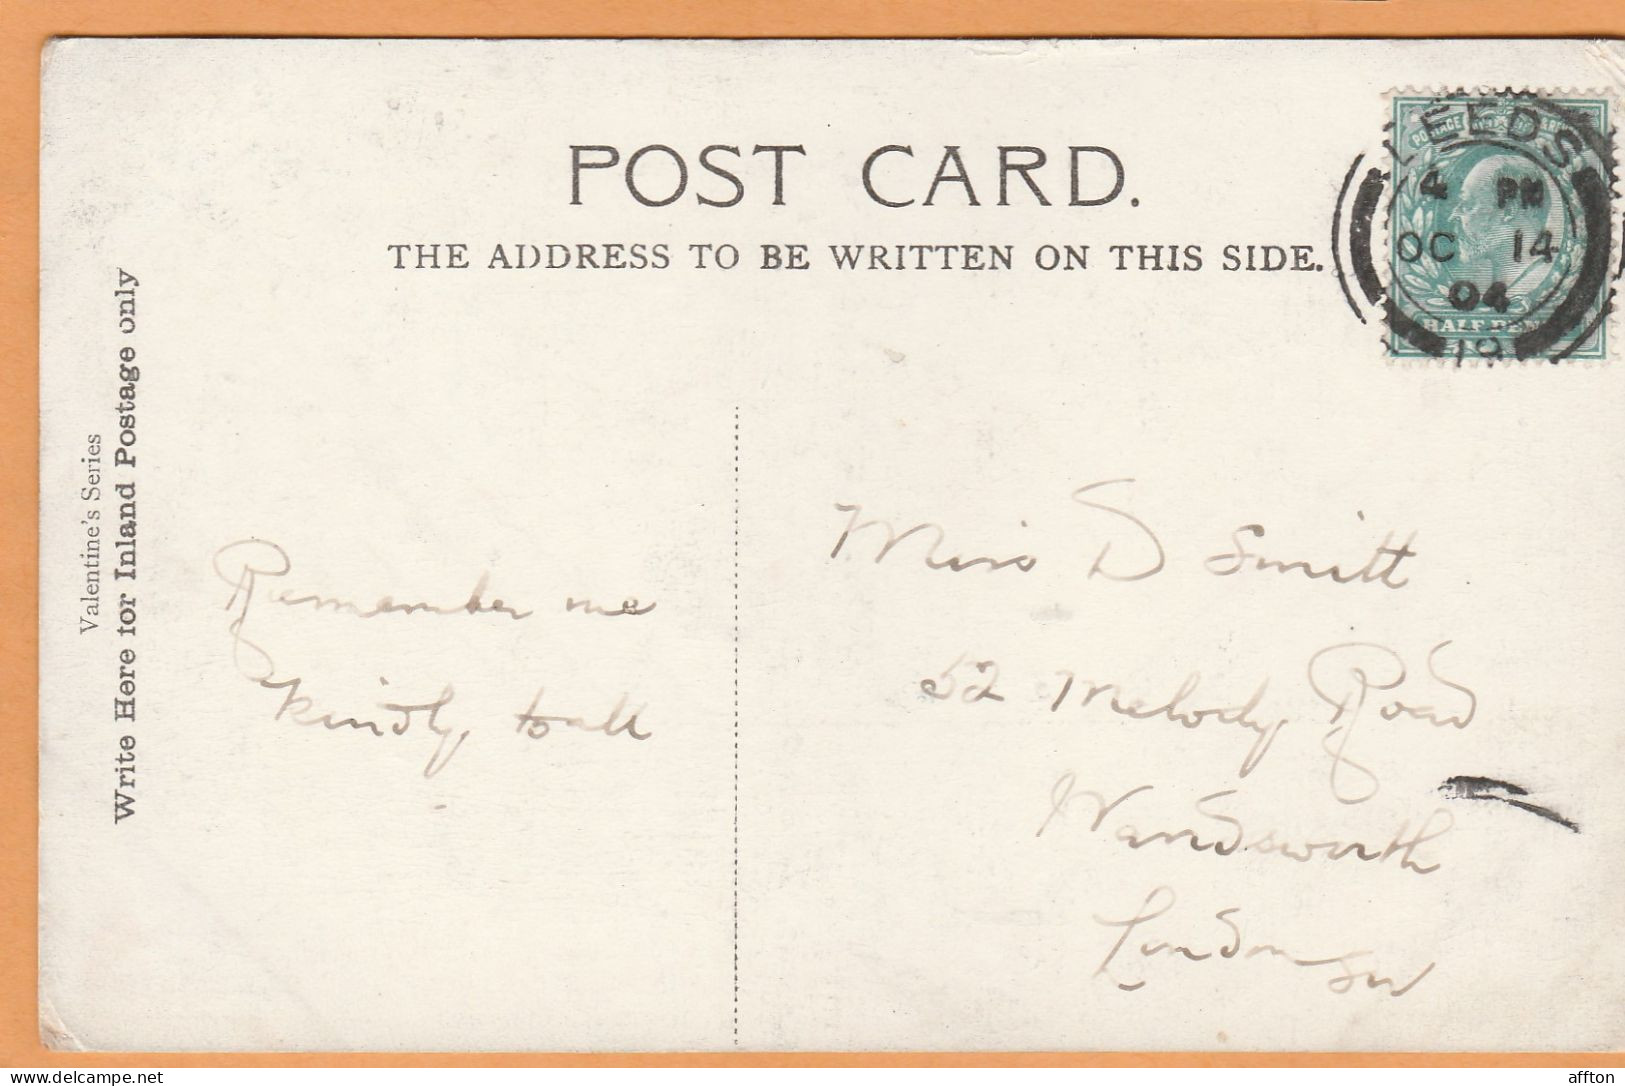 POST CARD.
THE ADDRESS TO BE WRITTEN ON THIS SIDE.
Valentine's Series
Write Here for Inland Postage only
LEEDS
4 PM
OC 14
04
19
POSTAGE
HALF PEN
Remember me
kindly to all
Miss D Smith
52 Melody Road
Wandsworth
London SW
delcampe.net
affton